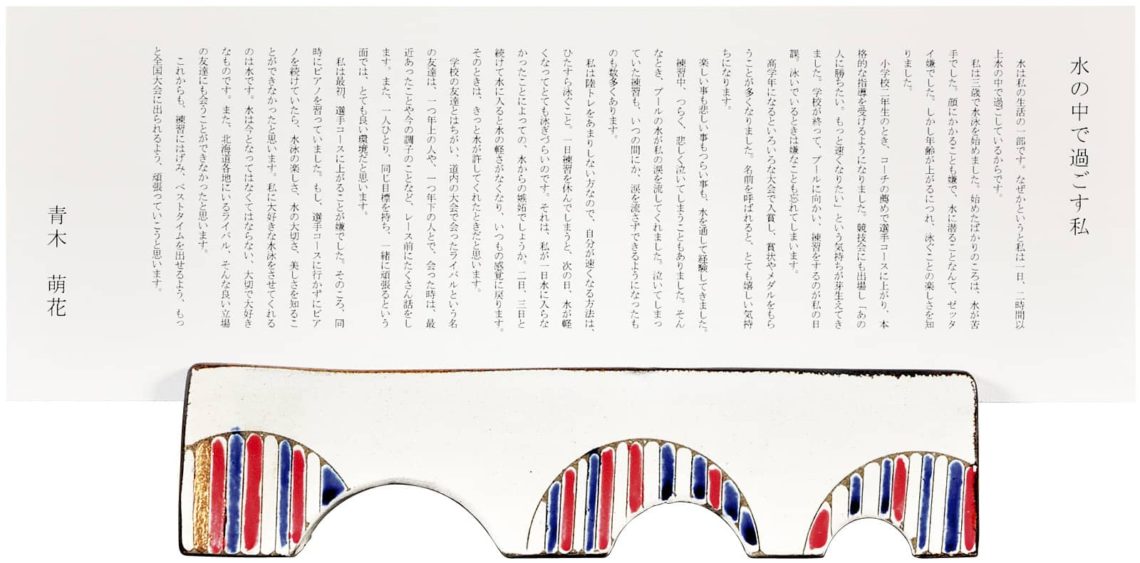 水の中で過ごす私
水は私の生活の一部です。なぜかというと私は一日、二時間以
上水の中で過ごしているからです。
私は三歳で水泳を始めました。始めたばかりのころは、水が苦
手でした。顔にかかることも嫌で、水に潜ることなんて、ゼッタ
イ嫌でした。しかし年齢が上がるにつれ、泳ぐことの楽しさを知
りました。
小学校二年生のとき、コーチの薦めで選手コースに上がり、本
格的な指導を受けるようになりました。競技会にも出場し「あの
人に勝ちたい。もっと速くなりたい」という気持ちが芽生えてき
ました。学校が終って、プールに向かい、練習をするのが私の日
課。泳いでいるときは嫌なことも忘れてしまいます。
高学年になるといろいろな大会で入賞し、賞状やメダルをもら
うことが多くなりました。名前を呼ばれると、とても嬉しい気持
ちになります。
楽しい事も悲しい事もつらい事も、水を通して経験してきました。
練習中、つらく、悲しく泣いてしまうこともありました。そん
なとき、プールの水が私の涙を流してくれました。泣いてしまっ
ていた練習も、いつの間にか、涙を流さずできるようになったも
のも数多くあります。
私は陸トレをあまりしない方なので、自分が速くなる方法は、
ひたすら泳ぐこと。一日練習を休んでしまうと、次の日、水が軽
くなってとても泳ぎづらいのです。それは、私が一日水に入らな
かったことによっての、水からの嫉妬でしょうか。二日、三日と
続けて水に入ると水の軽さがなくなり、いつもの感覚に戻ります。
そのときは、きっと水が許してくれたときだと思います。
学校の友達とはちがい、道内の大会で会ったライバルという名
の友達は、一つ年上の人や、一つ年下の人とで、会った時は、最
近あったことや今の調子のことなど、レース前にたくさん話をし
ます。また、一人ひとり、同じ目標を持ち、一緒に頑張るという
面では、とても良い環境だと思います。
私は最初、選手コースに上がることが嫌でした。そのころ、同
時にピアノを習っていました。もし、選手コースに行かずにピア
ノを続けていたら、水泳の楽しさ、水の大切さ、美しさを知るこ
とができなかったと思います。私に大好きな水泳をさせてくれる
のは水です。水は今となってはなくてはならない、大切で大好き
なものです。また、北海道各地にいるライバル、そんな良い立場
の友達にも会うことができなかったと思います。
これからも、練習にはげみ、ベストタイムを出せるよう、もっ
と全国大会に出られるよう、頑張っていこうと思います。
青木　萌花